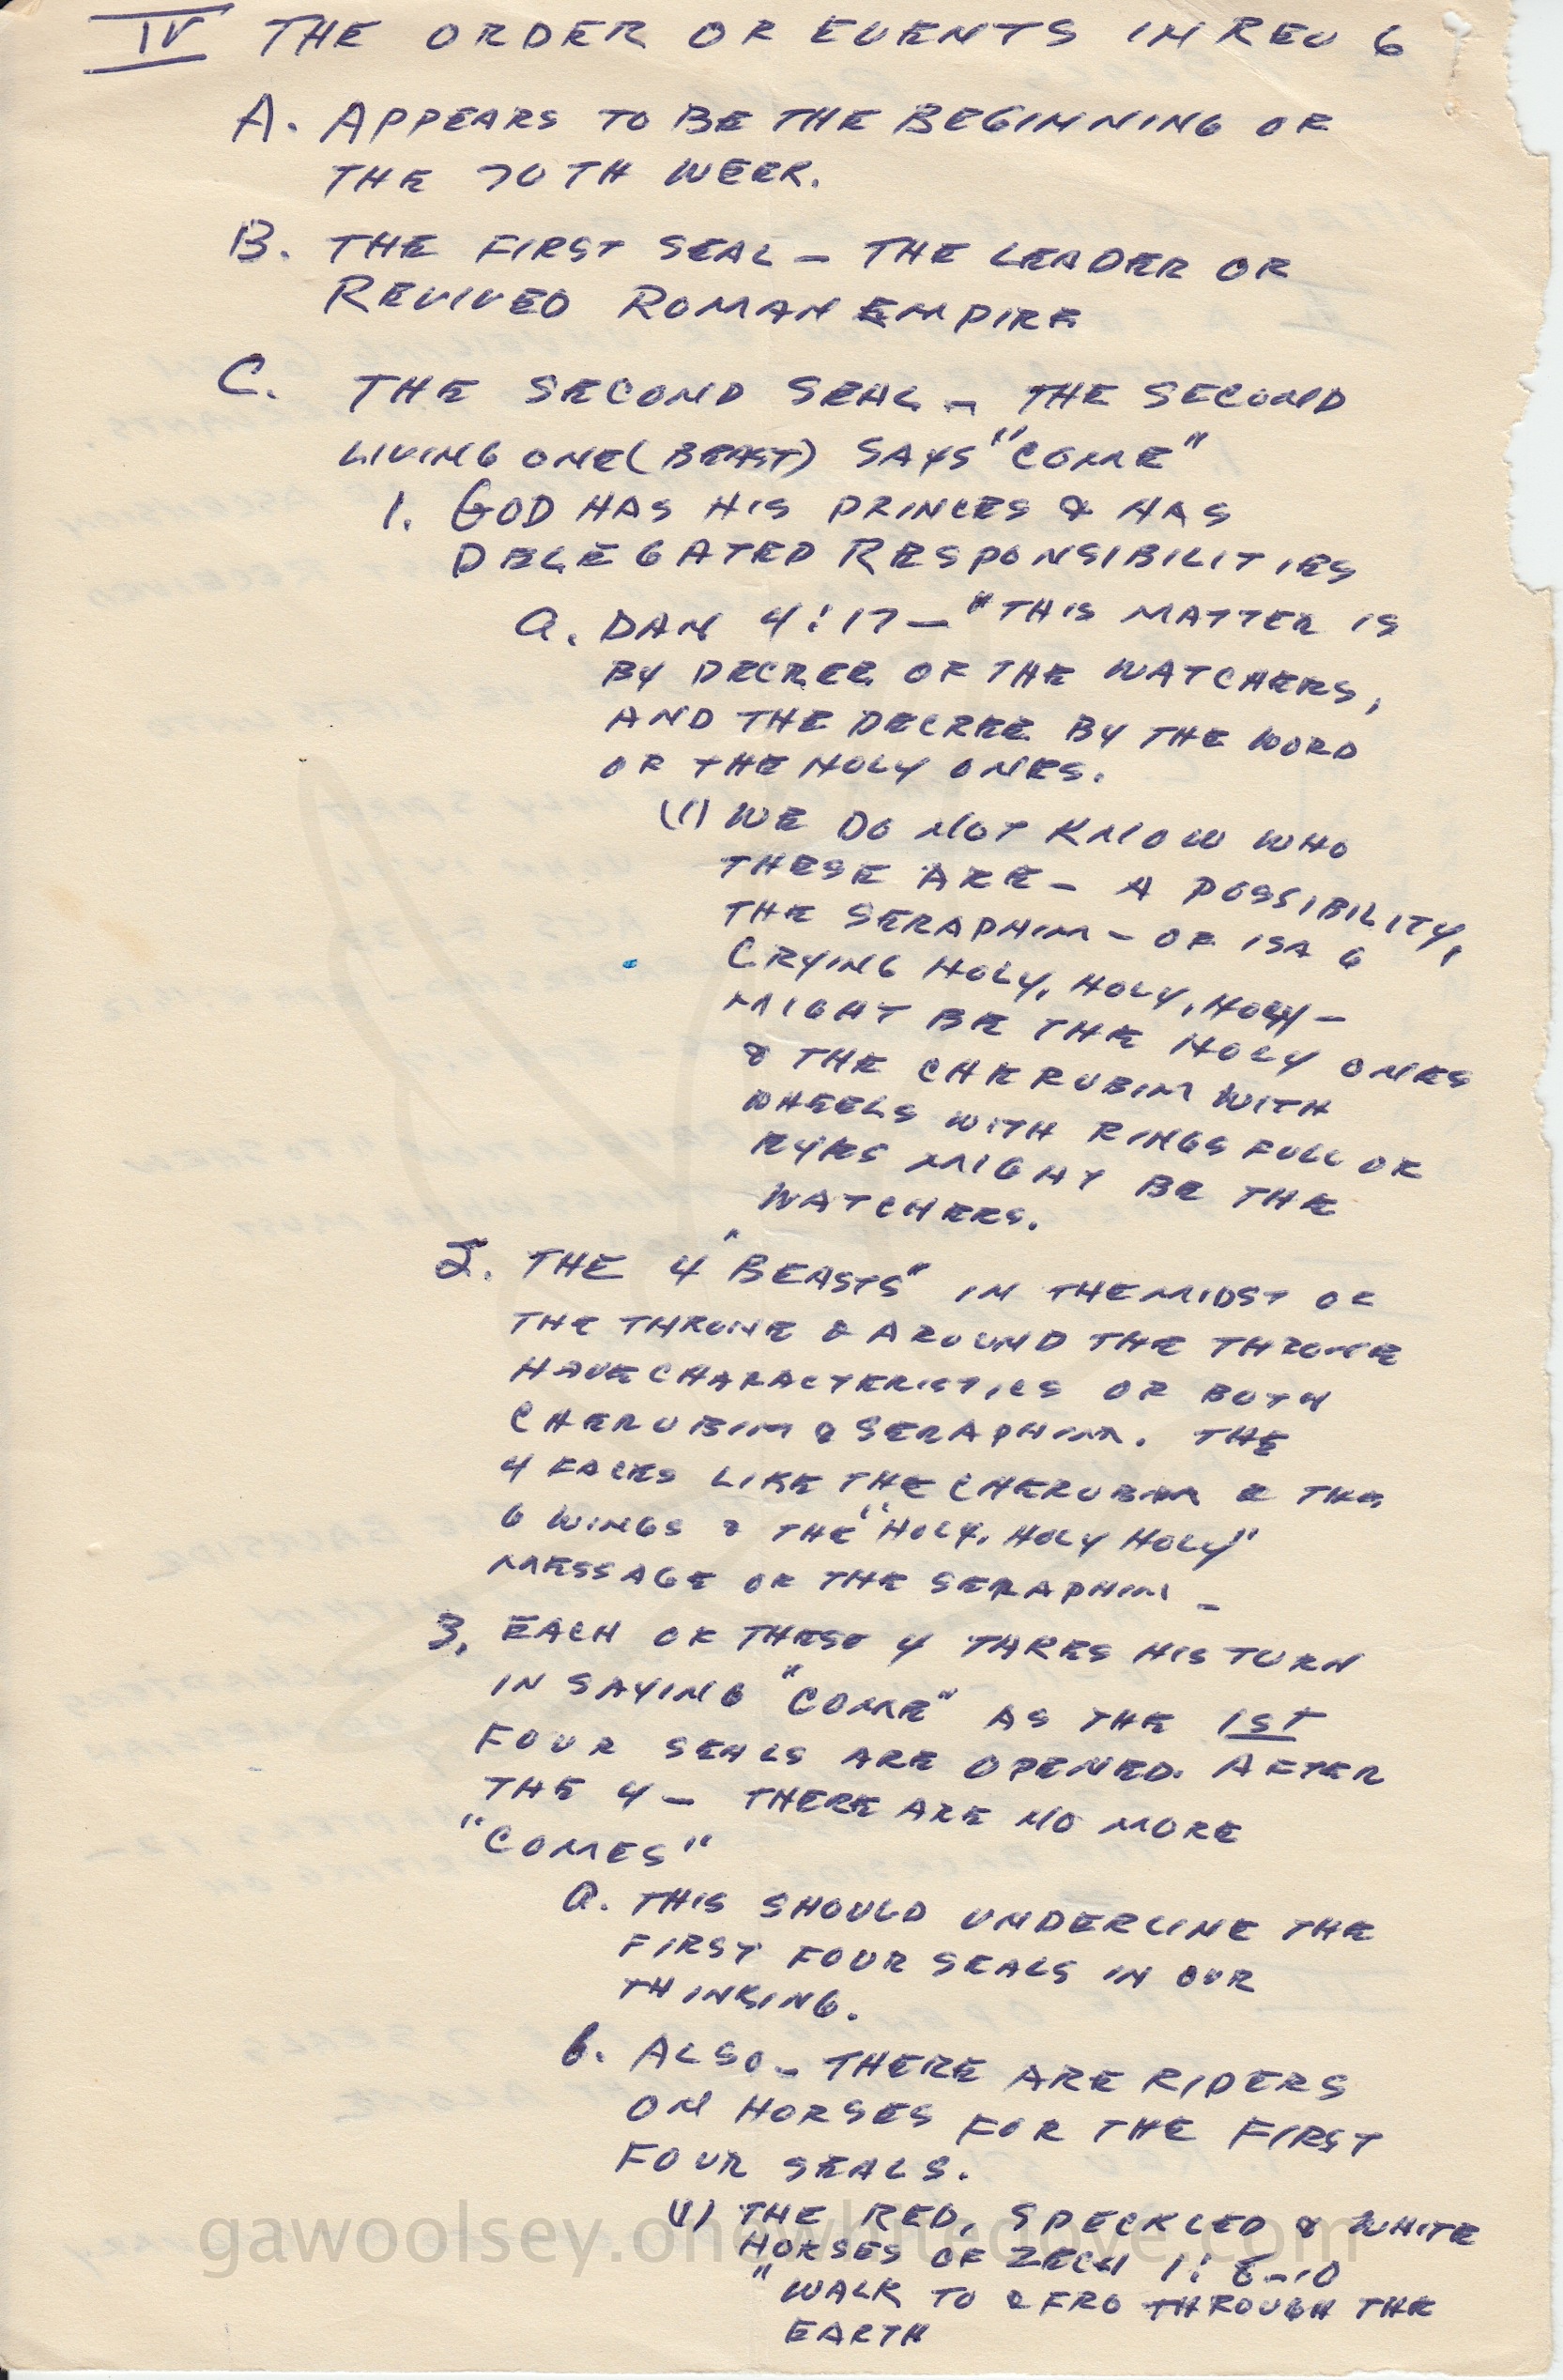 IV THE ORDER OF EVENTS IN REV 6
A. APPEARS TO BE THE BEGINNING OF
THE 70TH WEEK.
B. THE FIRST SEAL - THE LEADER OF
REVIVED ROMAN EMPIRE
C. THE SECOND SEAL - THE SECOND
LIVING ONE (BEAST) SAYS "COME"
1. GOD HAS HIS PRINCES & HAS
DELEGATED RESPONSIBILITIES
a. DAN 4:17 - "THIS MATTER IS
BY DECREE OF THE WATCHERS,
AND THE DECREE BY THE WORD
OF THE HOLY ONES.
(1) WE DO NOT KNOW WHO
THESE ARE - A POSSIBILITY,
THE SERAPHIM - OF ISA 6
CRYING HOLY, HOLY, HOLY -
MIGHT BE THE HOLY ONES
& THE CHERUBIM WITH
WHEELS WITH RINGS FULL OF
EYES MIGHT BE THE
WATCHERS.
2. THE 4 "BEASTS" IN THE MIDST OF
THE THRONE & AROUND THE THRONE
HAVE CHARACTERISTICS OF BOTH
CHERUBIM & SERAPHIM. THE
4 FACES LIKE THE CHERUBIM & THE
6 WINGS & THE "HOLY, HOLY HOLY"
MESSAGE OF THE SERAPHIM -
3. EACH OF THESE 4 TAKES HIS TURN
IN SAYING "COME" AS THE 1ST
FOUR SEALS ARE OPENED. AFTER
THE 4 - THERE ARE NO MORE
"COMES"
a. THIS SHOULD UNDERLINE THE
FIRST FOUR SEALS IN OUR
THINKING.
b. ALSO - THERE ARE RIDERS
ON HORSES FOR THE FIRST
FOUR SEALS.
(1) THE RED, SPECKLED & WHITE
HORSES OF ZECH 1:8-10
"WALK TO & FRO THROUGH THE
EARTH
gawoolsey.onewhitedove.com